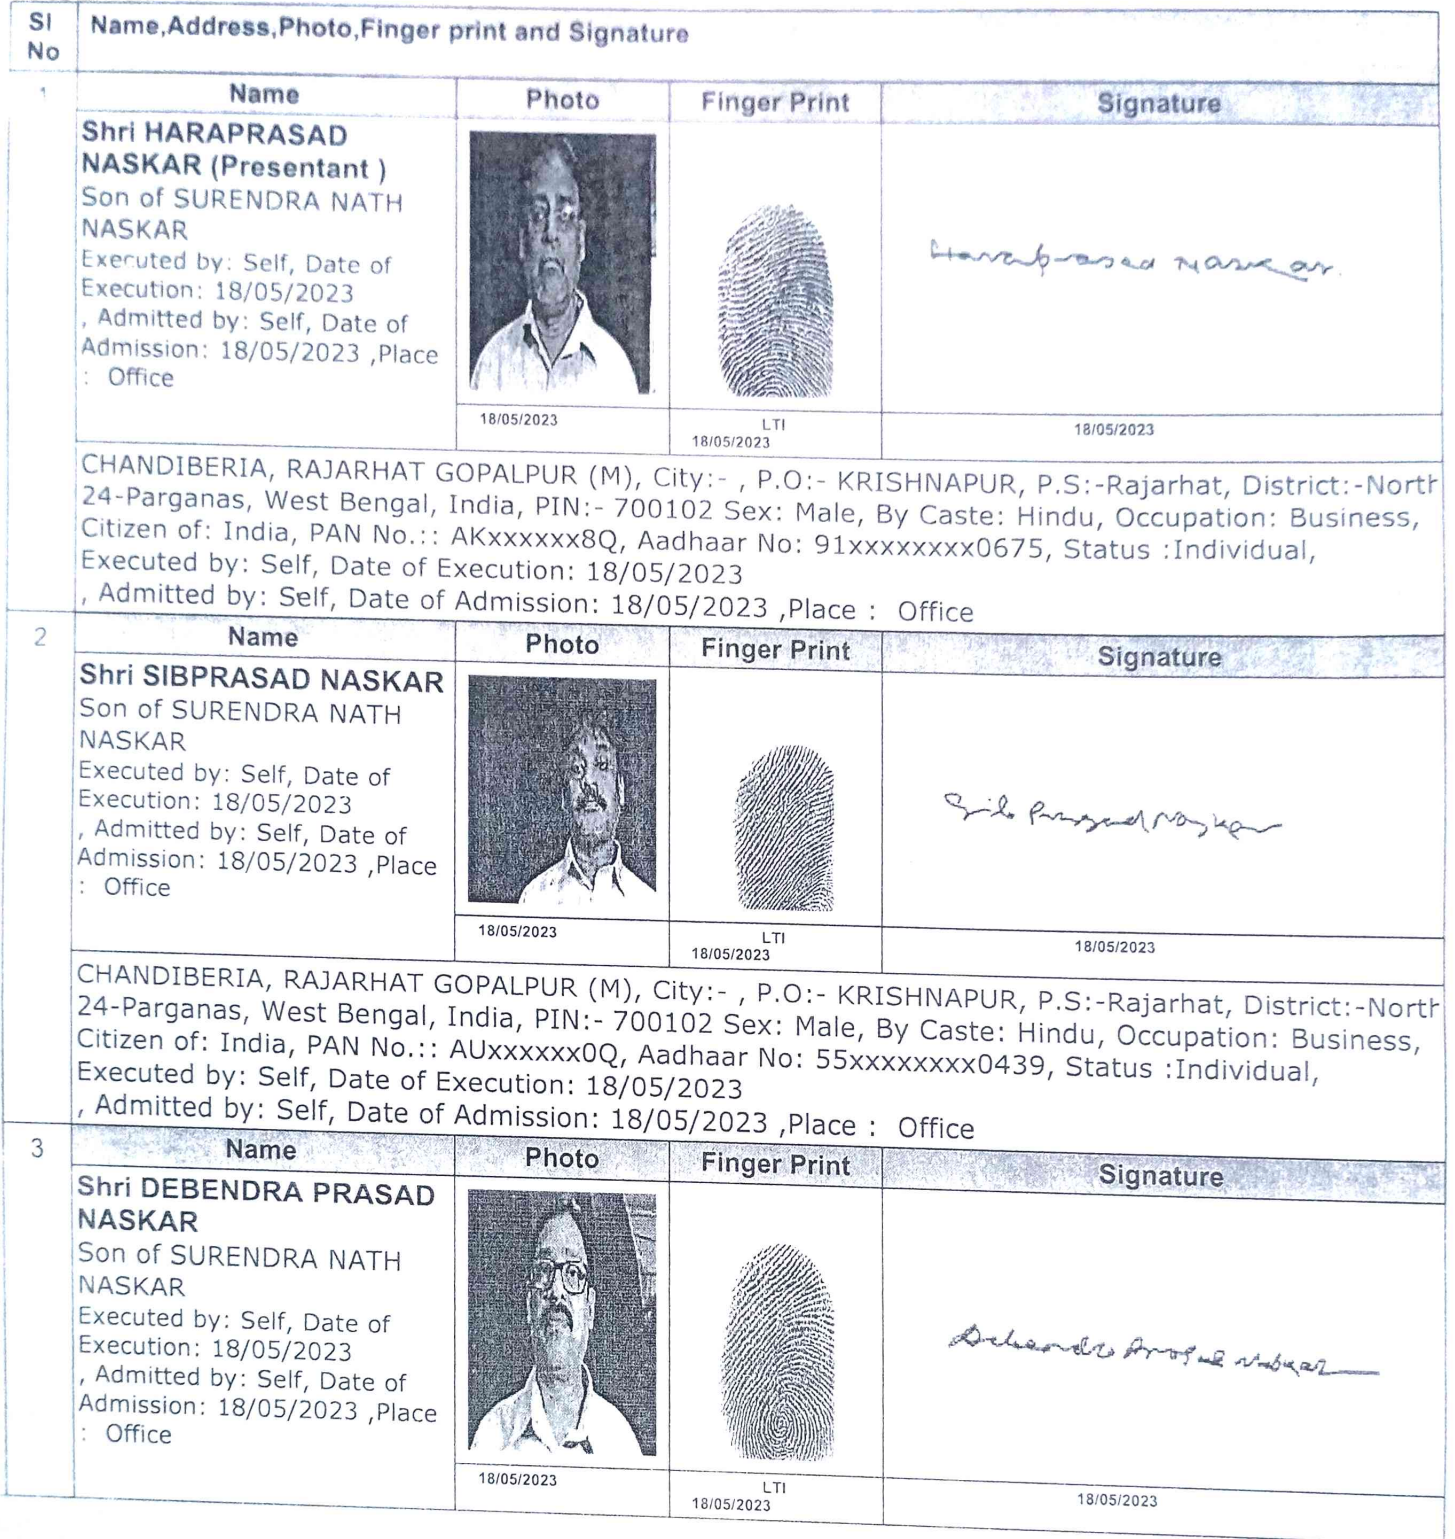 Sl No
Name,Address,Photo,Finger print and Signature
1
Name
Photo
Finger Print
Signature
Shri HARAPRASAD
NASKAR (Presentant )
Son of SURENDRA NATH
NASKAR
Executed by: Self, Date of
Execution: 18/05/2023
, Admitted by: Self, Date of
Admission: 18/05/2023 ,Place
: Office
Haraprasad Naskar.
18/05/2023
LTI
18/05/2023
18/05/2023
CHANDIBERIA, RAJARHAT GOPALPUR (M), City:- , P.O:- KRISHNAPUR, P.S:-Rajarhat, District:-North
24-Parganas, West Bengal, India, PIN:- 700102 Sex: Male, By Caste: Hindu, Occupation: Business,
Citizen of: India, PAN No.:: AKxxxxxx8Q, Aadhaar No: 91xxxxxxxx0675, Status :Individual,
Executed by: Self, Date of Execution: 18/05/2023
, Admitted by: Self, Date of Admission: 18/05/2023 ,Place : Office
2
Name
Photo
Finger Print
Signature
Shri SIBPRASAD NASKAR
Son of SURENDRA NATH
NASKAR
Executed by: Self, Date of
Execution: 18/05/2023
, Admitted by: Self, Date of
Admission: 18/05/2023 ,Place
: Office
Sib Prasad Naskar
18/05/2023
LTI
18/05/2023
18/05/2023
CHANDIBERIA, RAJARHAT GOPALPUR (M), City:- , P.O:- KRISHNAPUR, P.S:-Rajarhat, District:-North
24-Parganas, West Bengal, India, PIN:- 700102 Sex: Male, By Caste: Hindu, Occupation: Business,
Citizen of: India, PAN No.:: AUxxxxxx0Q, Aadhaar No: 55xxxxxxxx0439, Status :Individual,
Executed by: Self, Date of Execution: 18/05/2023
, Admitted by: Self, Date of Admission: 18/05/2023 ,Place : Office
3
Name
Photo
Finger Print
Signature
Shri DEBENDRA PRASAD
NASKAR
Son of SURENDRA NATH
NASKAR
Executed by: Self, Date of
Execution: 18/05/2023
, Admitted by: Self, Date of
Admission: 18/05/2023 ,Place
: Office
Debendra Prasad Naskar
18/05/2023
LTI
18/05/2023
18/05/2023